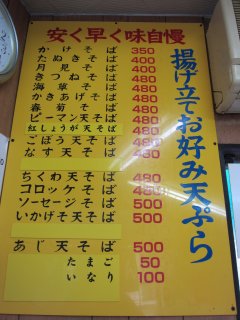 安く早く味自慢
揚げ立てお好み天ぷら
かけそば 350
たぬきそば 400
月見そば 400
きつねそば 480
海草そば 480
かきあげそば 480
春菊そば 480
ピーマン天そば 480
紅しょうが天そば 480
ごぼう天そば 480
なす天そば 480
ちくわ天そば 480
コロッケそば 480
ソーセージそば 500
いかげそ天そば 500
あじ天そば 500
たまご 50
いなり 100